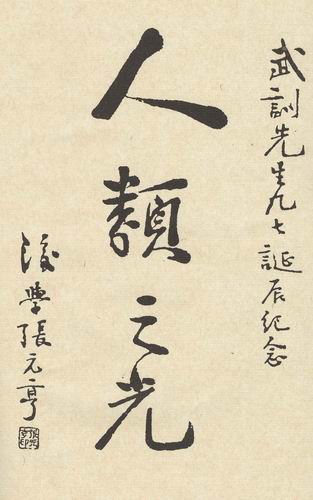 武訓先生九七誕辰紀念
人類之光
後學張元亨